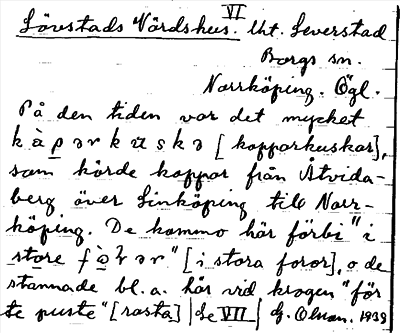 VI
Lövstads Värdshus. Utt. Leverstad
Borgs sn.
Norrköping. Ögl.
På den tiden var det mycket
kàpərkuskə [kopparkuskar],
som körde koppar från Åtvida-
berg över Linköping till Norr-
köping. De kommo här förbi "i
store fòrər" [i stora foror], o de
stannade bl. a. här vid krogen "för
te puste" [rasta] | Se VII | G. Olson. 1939